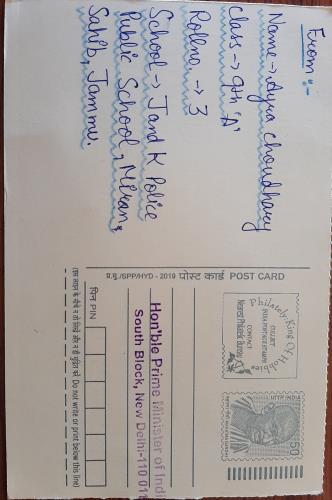 From :-
Name → Ayra Choudhary
Class → 9th 'A'
Roll no. → 3
School → J and K Police
Public School, Miran
Sahib, Jammu.
प्र.मु./SPP/HYD - 2019 पोस्ट कार्ड POST CARD
Philately-King Of Hobbies
COLLECT
INDIA POSTAGE STAMPS
CONTACT
Nearest Philatelic Bureau
भारत INDIA
50
Hon'ble Prime Minister of Indi
South Block, New Delhi-110 011
पिन PIN
(इस लाइन के नीचे न तो लिखें और न ही मुद्रित करें Do not write or print below this line)